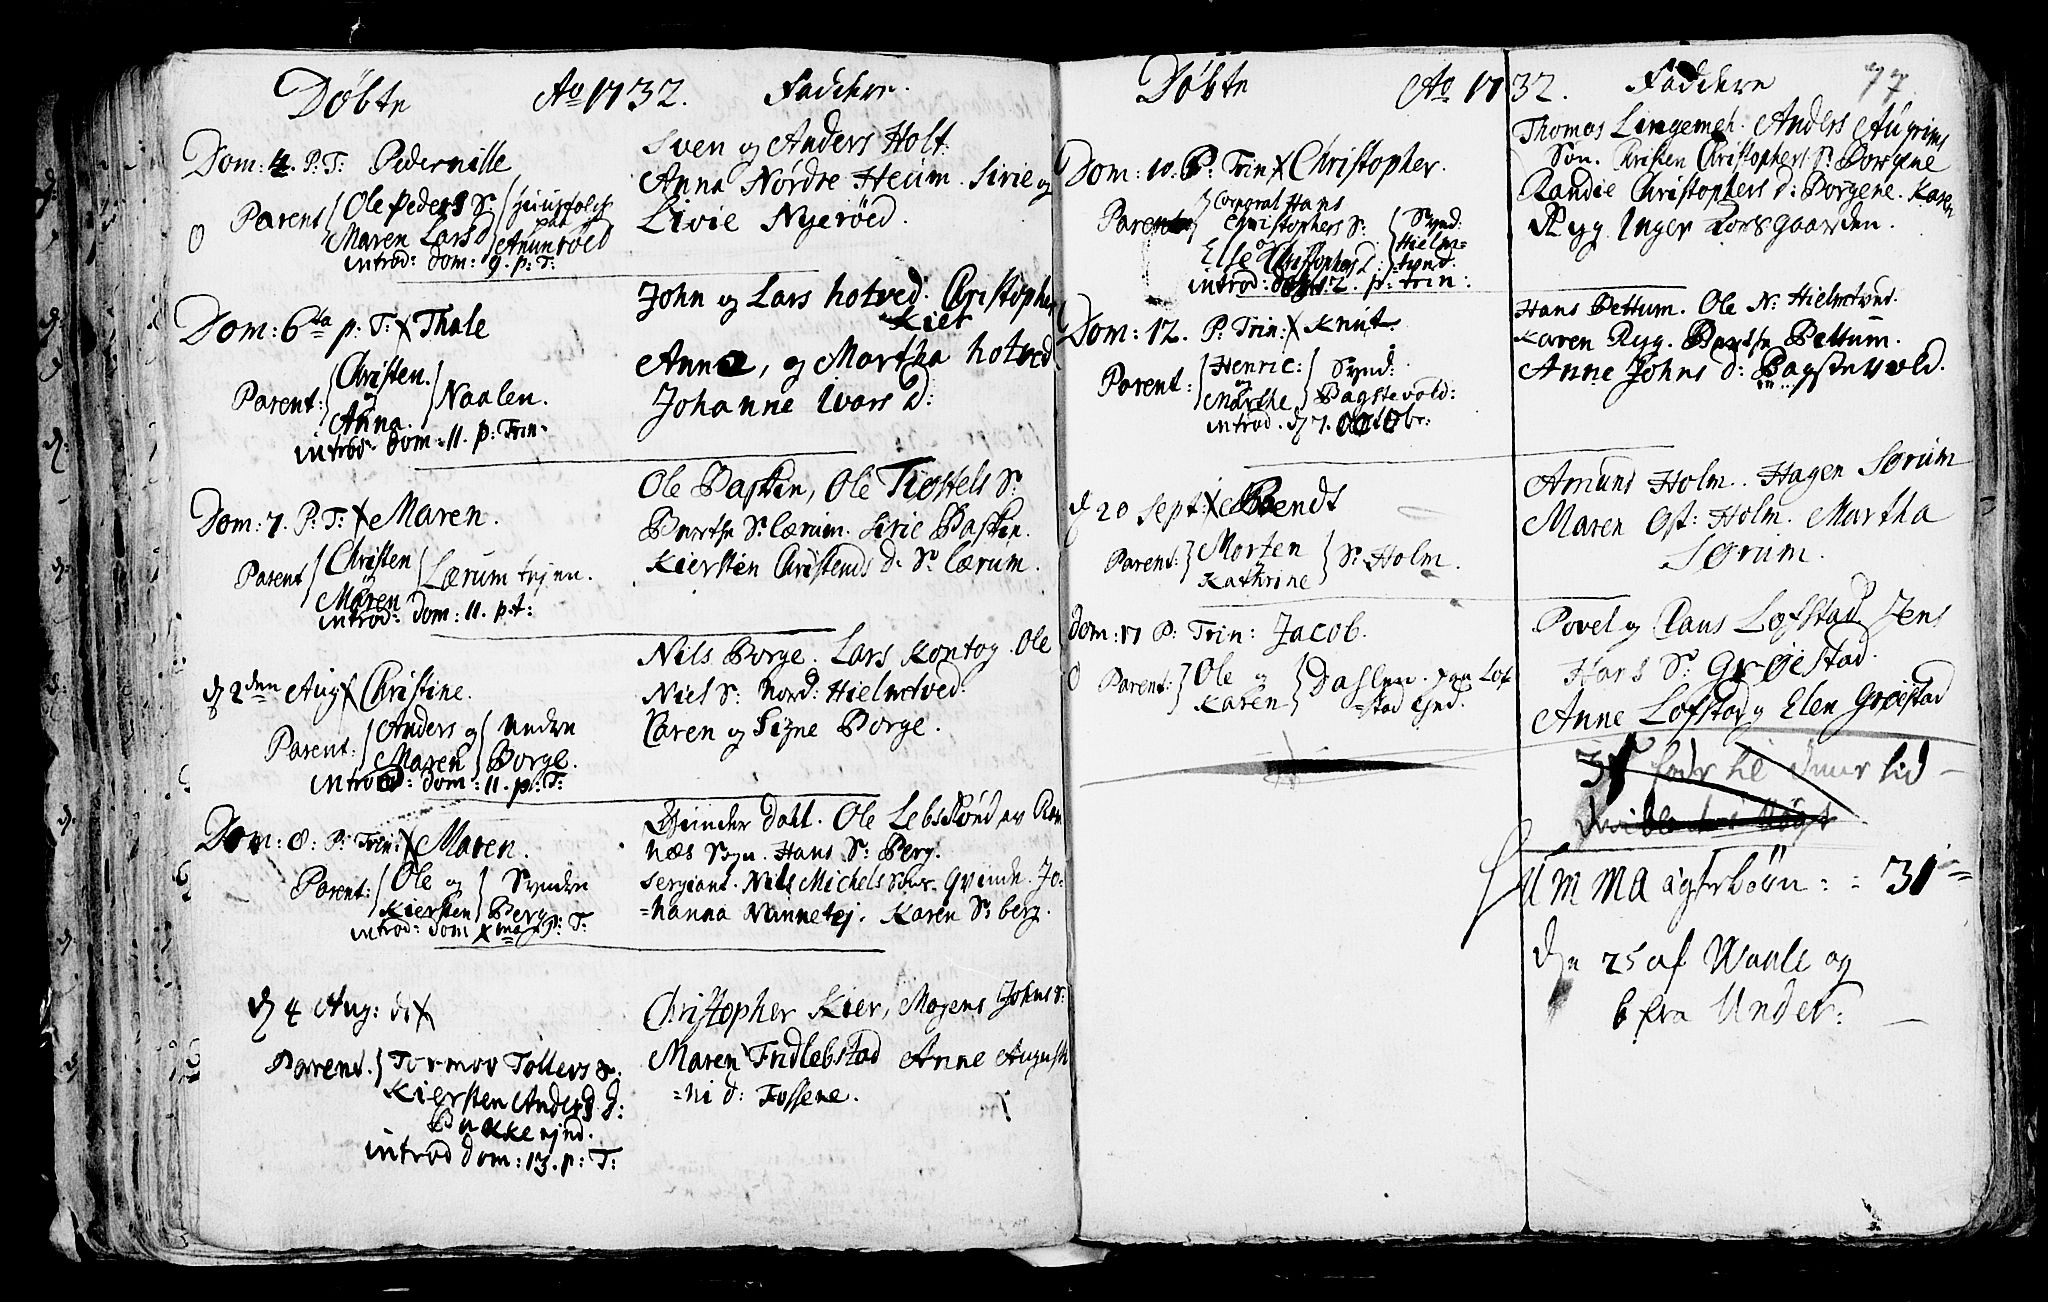 Döbte Ao 1732. Faddere.
Dom: 4. P: T: Pedernille
Parent Ole Peders S:
Maren Lars d
Anunröed
introd: dom: 9. p: T:
Sven og Anders Holt
Anna Nordre Heüm. Sirie og
Livie Nyeröed.
Dom: 6ta p: T: Thale
Parent: Christen og Anna. Naalen.
introd: dom: 11. p: Trin:
John og Lars hotved. Christopher
Kier
Anna, og Martha hotved
Johanne Ivars d:
Dom: 7. P: T: Maren.
Parent Christen og Maren Lærum
introd: dom: 11. p: t:
Ole Basken, Ole Tiostels S:
Berthe S: lærum. Sirie Basken.
Kiersten Christens d. S: lærum.
d 2den Aug Christine.
Parent: Anders og Maren Nedre Borge.
introd: dom: 11. p: T:
Nils Borge. Lars Kontog. Ole
Niels S: Nord: Hielmtved.
Caren og Signe Borge.
Dom: 8: P: Trin: Maren.
Parent: Ole og Kiersten Syndre Berg
introd: dom p: T:
Dahl. Ole af Ram
næs Sogn. Hans S: Berg.
Sergiant. Nils Michels Gvinde. Jo:
=hanna Karen S: berg.
d 4 Aug:
Parent. Tormor Tollers S:
Kiersten Anders d:
introd dom: 13. p: T:
Christopher Kier, Mogens Johns S:
Maren Fridlebstad Anne August
=ni d: Fossene.
Döbte Ao 1732. Faddere 77
Dom: 10. P: Trin Christopher.
Parent Corporal Hans
Christophers S:
og
Else Christophers d:
Synd:
Hielm=
=tvend.
introd: 12. p: trin:
Thomas Anders Augrims
Son. Kristen Christophers S: Borgene
Randie Christophers d: Borgene. Karen
Ryg. Inger Korsgaarden.
Dom: 12. P: Trin: Knut.
Parent: Henric: og Marthe Synd: Bagstevold:
introd. d 7. octobr:
Hans Bettum. Ole N: Hielmtved.
Karen Ryg. Berthe Bettum.
Anne Johns d: Bagstevold.
d 20 Sept: Bendt
Parent: Morten og Kathrine S: Holm.
Amund Holm. Hagen Sørum
Maren Øst: Holm. Martha
Sørum.
Dom: 17 P: Trin: Jacob.
Parent: Ole og Karen Dahlen. paa Lof
=stad Ejnd.
Povel og Claus Lofstad Jens
Hans S: Grøestad.
Anne Lofstad og Elen Grøestad
til tid
Summa børn: = 31 =
den 25 af Waale og
6 fra Under: